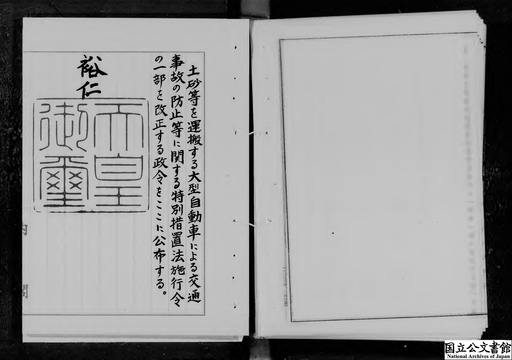 土砂等を運搬する大型自動車による交通
事故の防止等に関する特別措置法施行令
の一部を改正する政令をここに公布する。
裕仁
天皇
御璽
内
閣
国立公文書館
National Archives of Japan